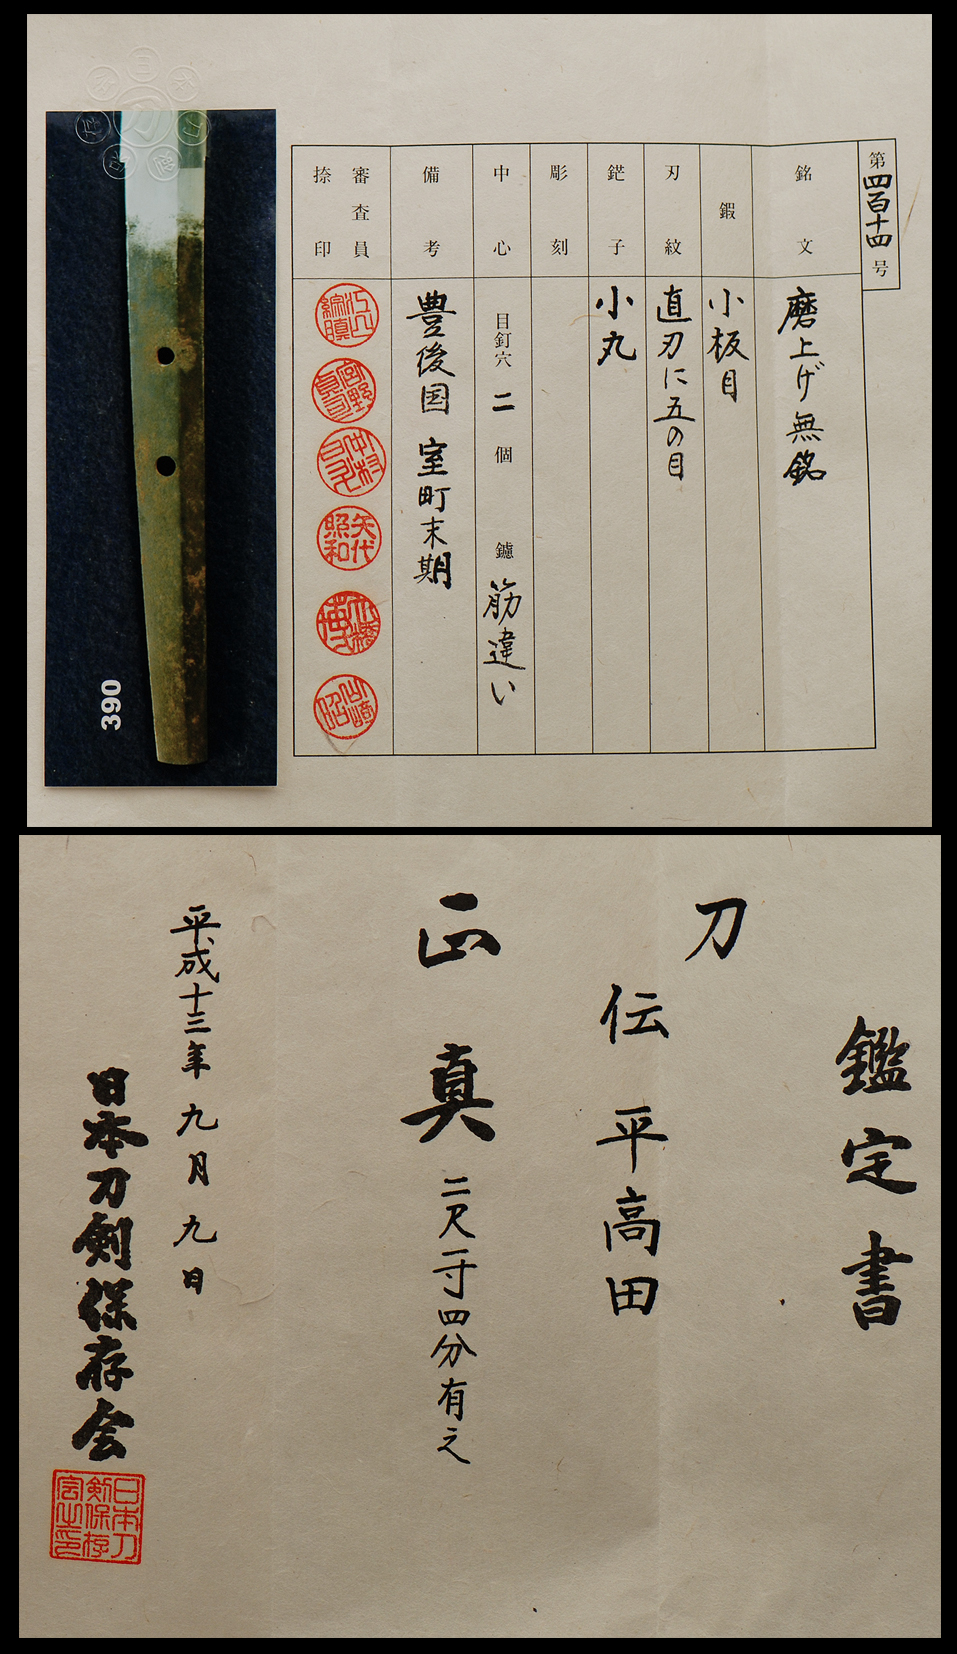 第四百十四号
銘文
磨上げ無銘
鍜
小板目
刃紋
直刃に五の目
鋩子
小丸
彫刻
中心
目釘穴 二 個 鑢 筋違い
備考
豊後国 室町末期
審査員
捺印
矢代
照和
390
鑑定書
刀
伝 平高田
正真 二尺一寸四分有之
平成十三年九月九日
日本刀剣保存会
日本刀
剣保存
会之印